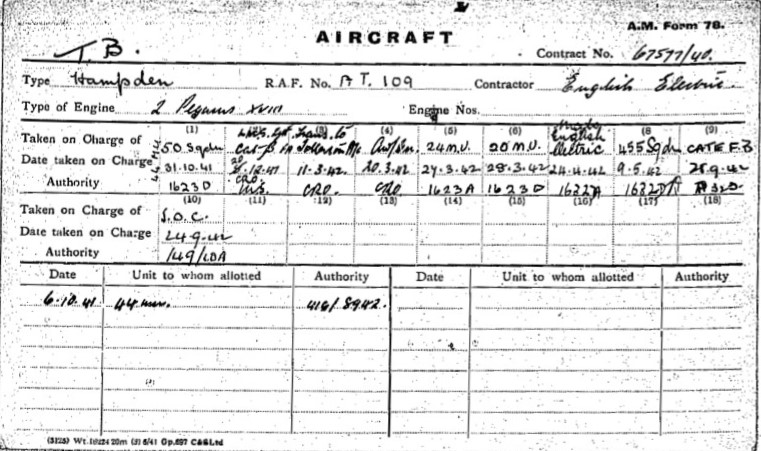 AIRCRAFT
A.M. Form 78.
T.B.
Contract No. 67577/40.
Type Hampden R.A.F. No. AT. 109 Contractor English Electric.
Type of Engine 2 Pegasus XVIII Engine Nos.
(1) (4) (5) (6) (8) (9)
Taken on Charge of 50 Sqdn 24 M.U. 20 M.U. Made English Electric 455 Sqdn CATE F.B
Date taken on Charge 31.10.41 12.41 11.3.42 20.3.42 27.3.42 28.3.42 24.4.42 9.5.42 25.9.42
Authority 1623D CRO CRO 1623A 1623D 1632A
(10) (11) (12) (13) (14) (15) (16) (17) (18)
Taken on Charge of S.O.C.
Date taken on Charge 24.9.42
Authority 149/LDA
Date Unit to whom allotted Authority Date Unit to whom allotted Authority
6.10.41 44 mu. 416/8942.
(3125) Wt. 19224 20m (3) 5/41 Gp.697 C&S Ltd